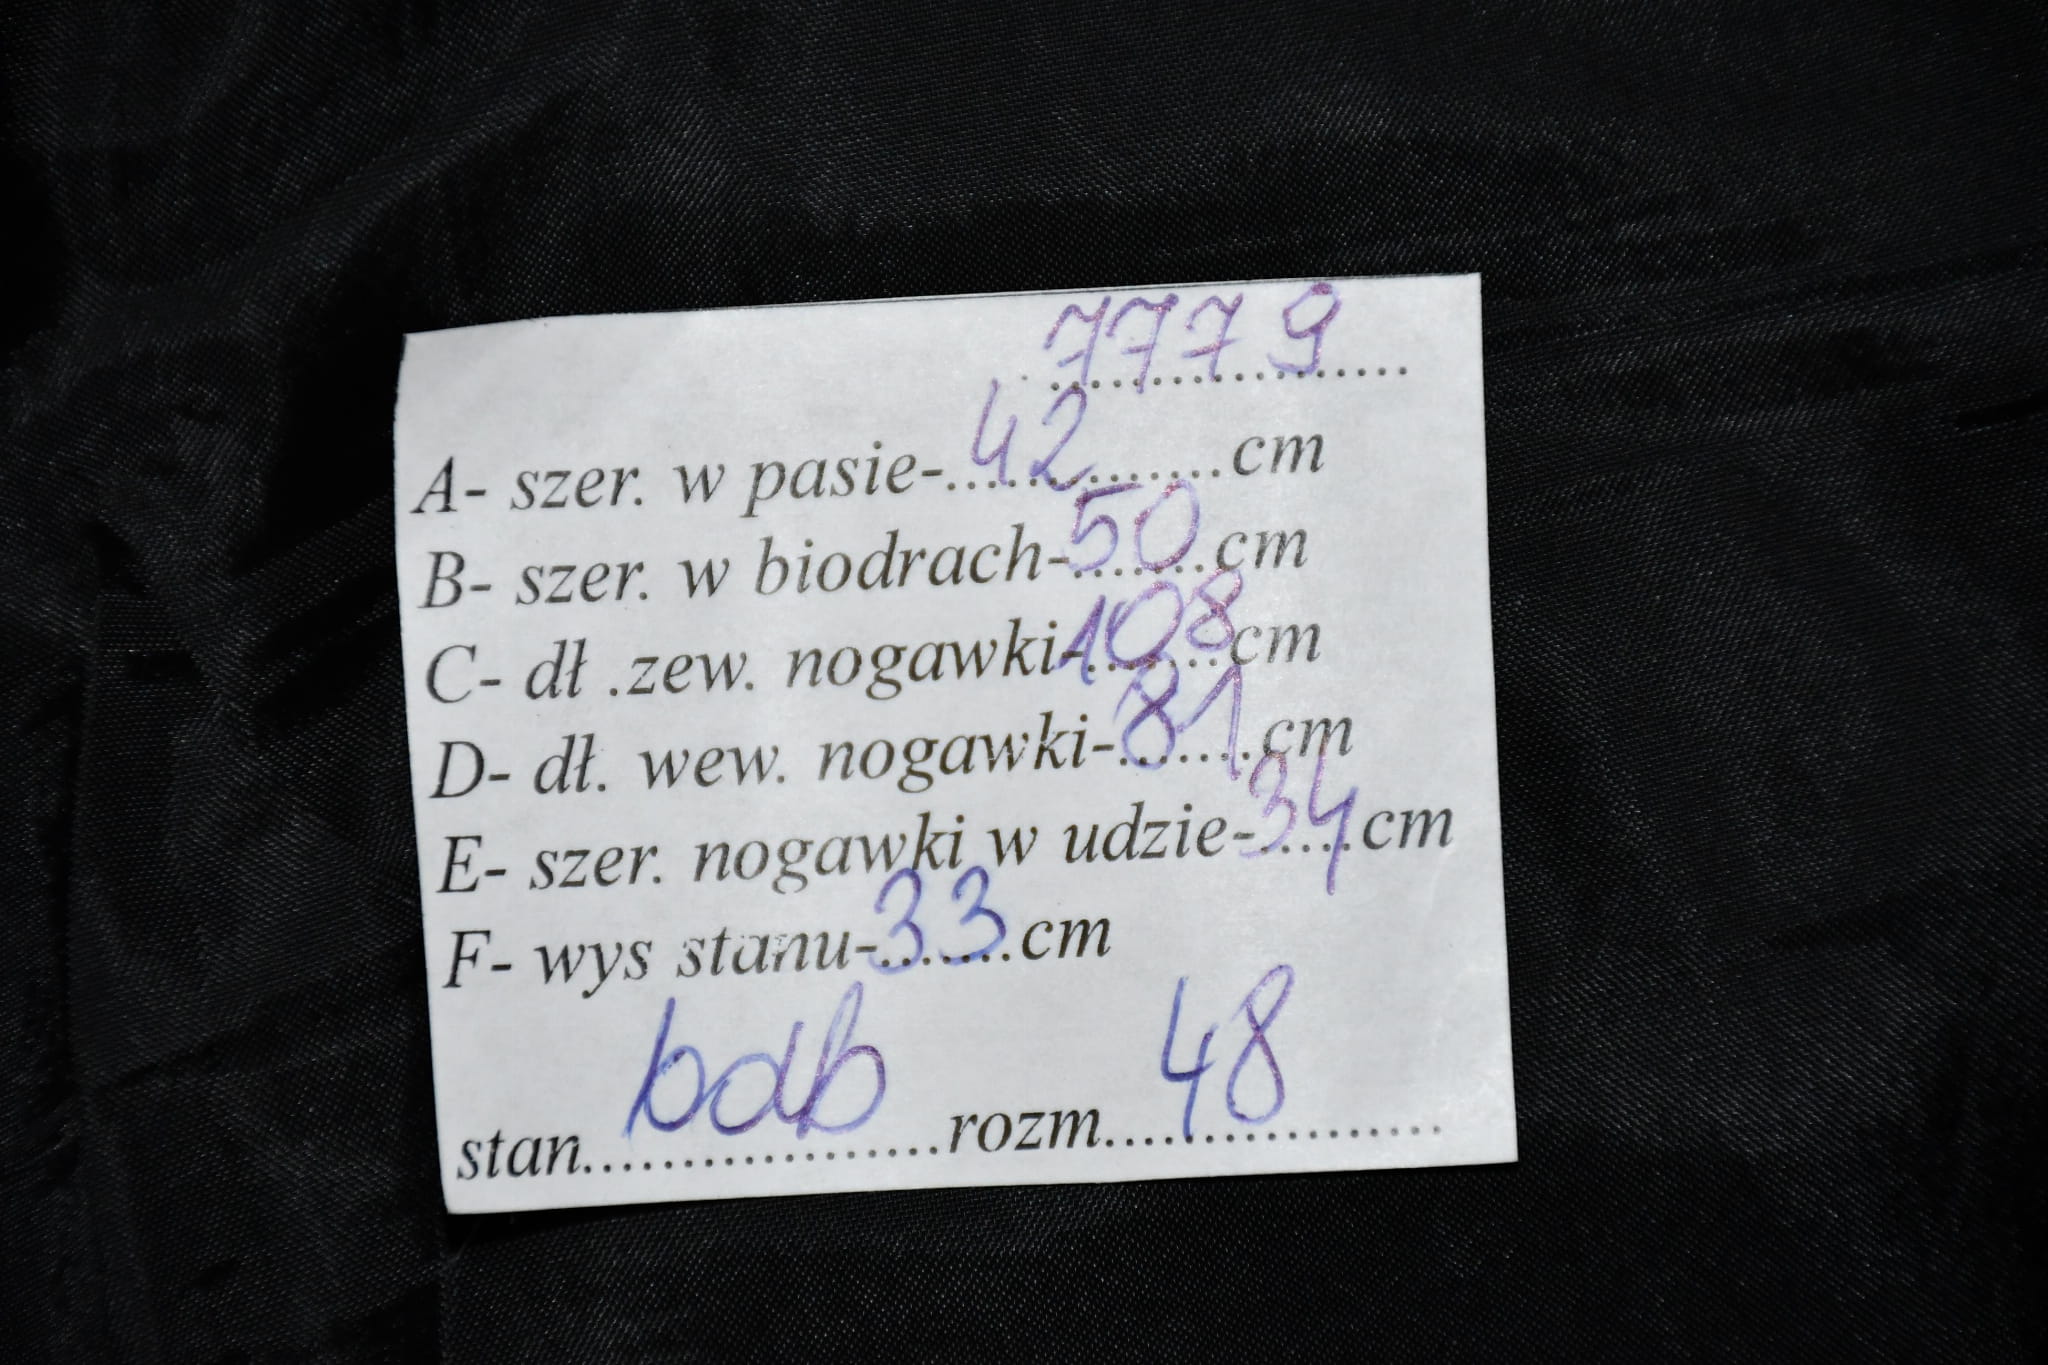 7779
A- szer. w pasie-..42.......cm
B- szer. w biodrach-50.cm
C- dł .zew. nogawki-108cm
D- dł. wew. nogawki-81.cm
E- szer. nogawki w udzie-34.cm
F- wys stanu-33.cm
stan..bdb...rozm...48........